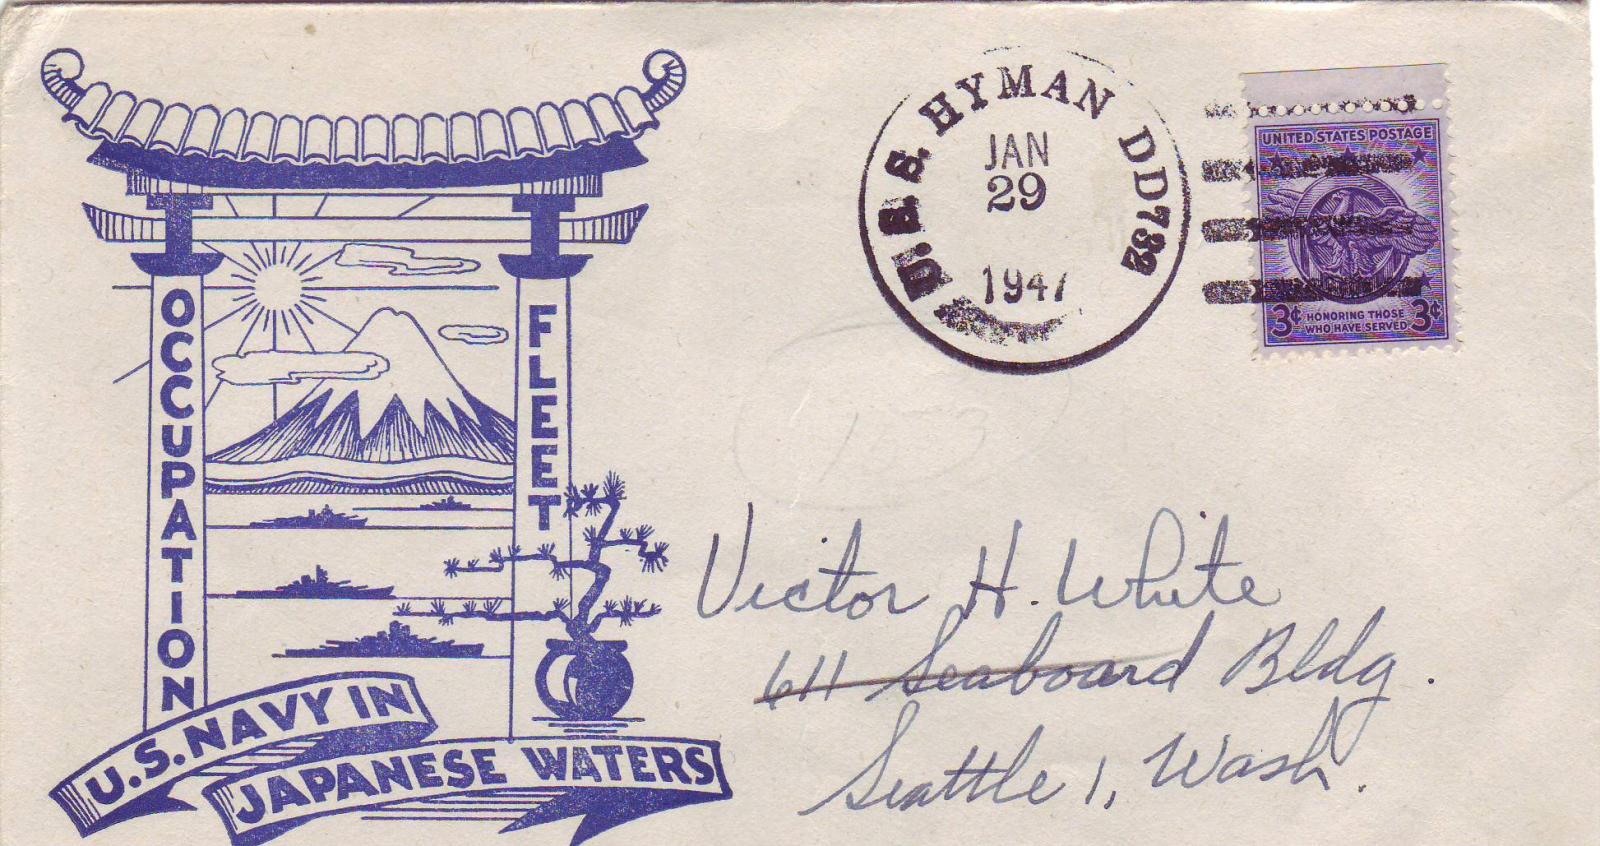 OCCUPATION
FLEET
U.S. NAVY IN
JAPANESE WATERS
U.S.S. HYMAN DD732
JAN
29
1947
UNITED STATES POSTAGE
3¢ HONORING THOSE 3¢
WHO HAVE SERVED
Victor H. White
611 Seaboard Bldg.
Seattle 1, Wash.